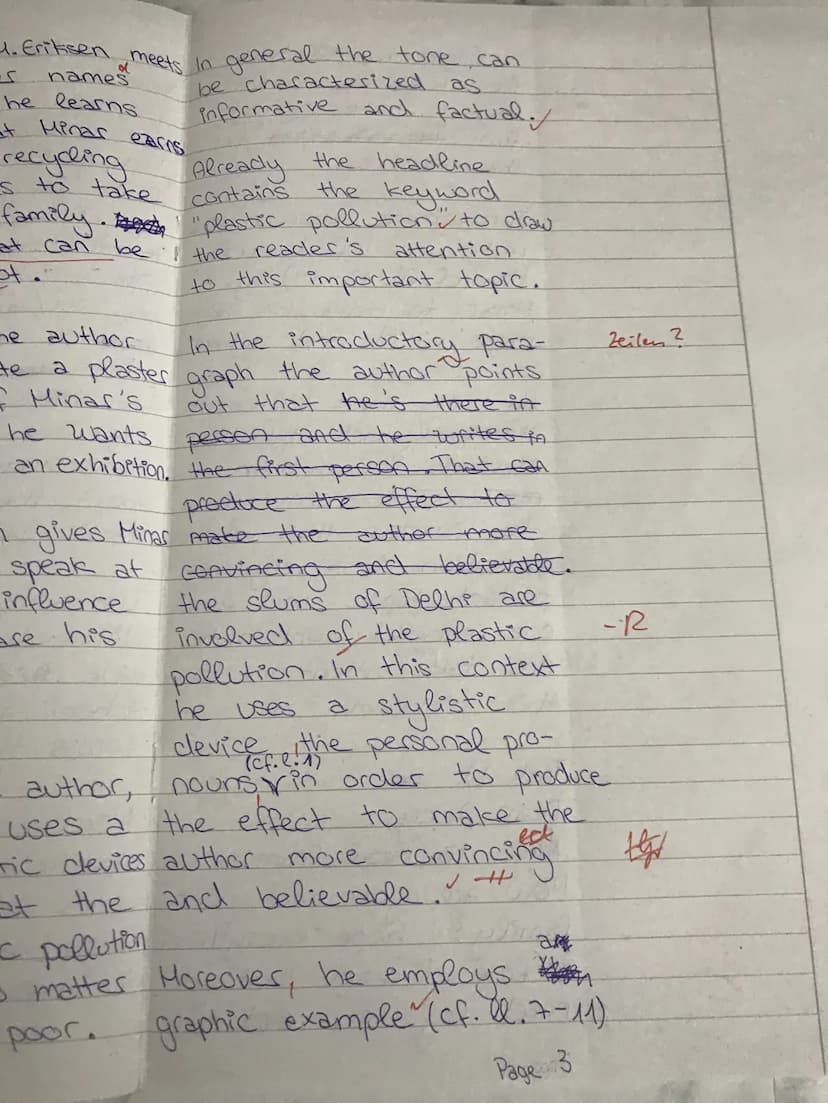 u. Eriksen meets
s names
he learns
at Minar earns
recycling
s to take
family.
at can be
ot.
he author
te a plaster
f Minar's
he wants
an exhibition.
n gives Minar
speak at
influence
ase his
author,
uses a
ric devices
at the
c pollution
matter
poor.
In general the tone can
be characterized as
informative and factual.
Already the headline
contains the keyword
"plastic pollution" to draw
the reader's attention
to this important topic.
In the introductory para-
graph the author points
out that he's there in
person and he writes in
the first person. That can
produce the effect to
make the author more
convincing and believable.
the slums of Delhi are
involved of the plastic
pollution. In this context
he uses a stylistic
device, the personal pro-
(cf. l. 1)
nouns in order to produce
the effect to make the
author more convincing
ed
and believable.
Moreover, he employs
graphic example (cf. ll. 7-11)
Zeilen?
-R
Page 3